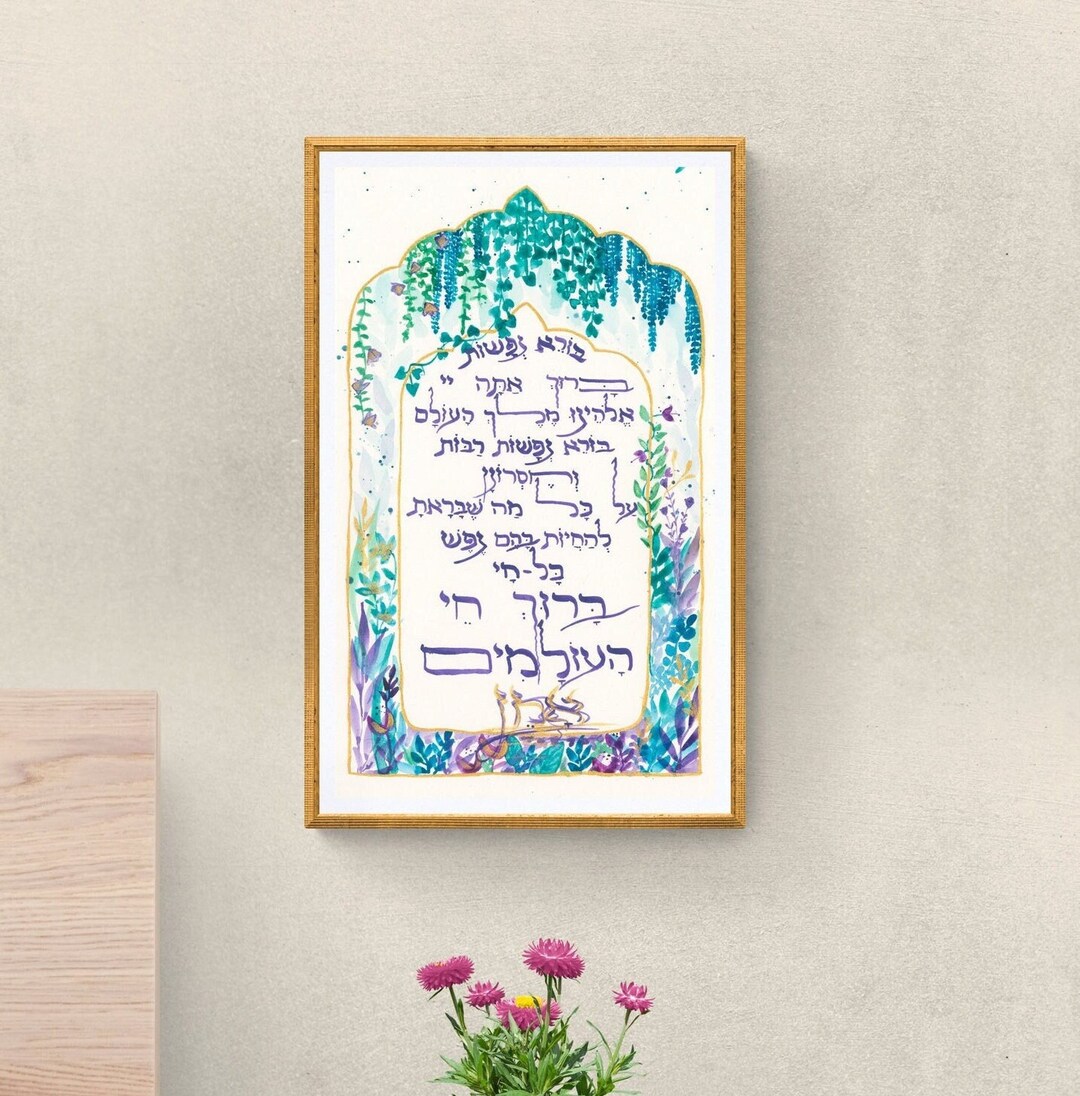 בּוֹרֵא נְפָשׁוֹת
בָּרוּךְ אַתָּה יי
אֱלֹהֵינוּ מֶלֶךְ הָעוֹלָם
בּוֹרֵא נְפָשׁוֹת רַבּוֹת
וְחֶסְרוֹנָן
עַל כָּל מַה שֶּׁבָּרָאתָ
לְהַחֲיוֹת בָּהֶם נֶפֶשׁ
כָּל-חָי
בָּרוּךְ חֵי
הָעוֹלָמִים
אָמֵן